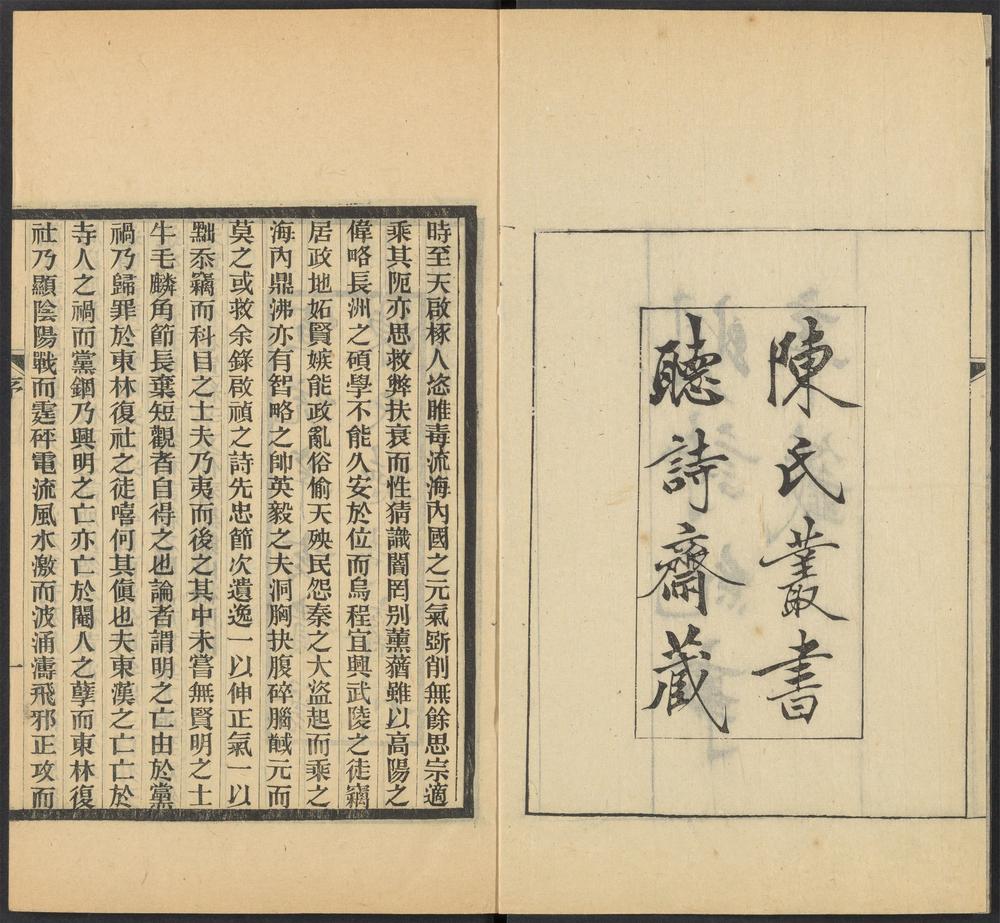 陳氏叢書
聽詩齋藏
時至天啟椓人恣睢毒流海內國之元氣斲削無餘思宗適
乘其阨亦思救弊扶衰而性猜識闇罔别薰蕕雖以高陽之
偉略長洲之碩學不能久安於位而烏程宜興武陵之徒竊
居政地妬賢嫉能政亂俗偷天殃民怨秦之大盜起而乘之
海內鼎沸亦有智略之帥英毅之夫洞胸抉腹碎腦馘元而
莫之或救余錄啟禎之詩先忠節次遺逸一以伸正氣一以
黜忝竊而科目之士夫乃夷而後之其中未嘗無賢明之士
牛毛麟角節長棄短觀者自得之也論者謂明之亡由於黨
禍乃歸罪於東林復社之徒嘻何其傎也夫東漢之亡亡於
寺人之禍而黨錮乃興明之亡亦亡於閹人之孽而東林復
社乃顯陰陽戰而霆砰電流風水激而波涌濤飛邪正攻而
序
一